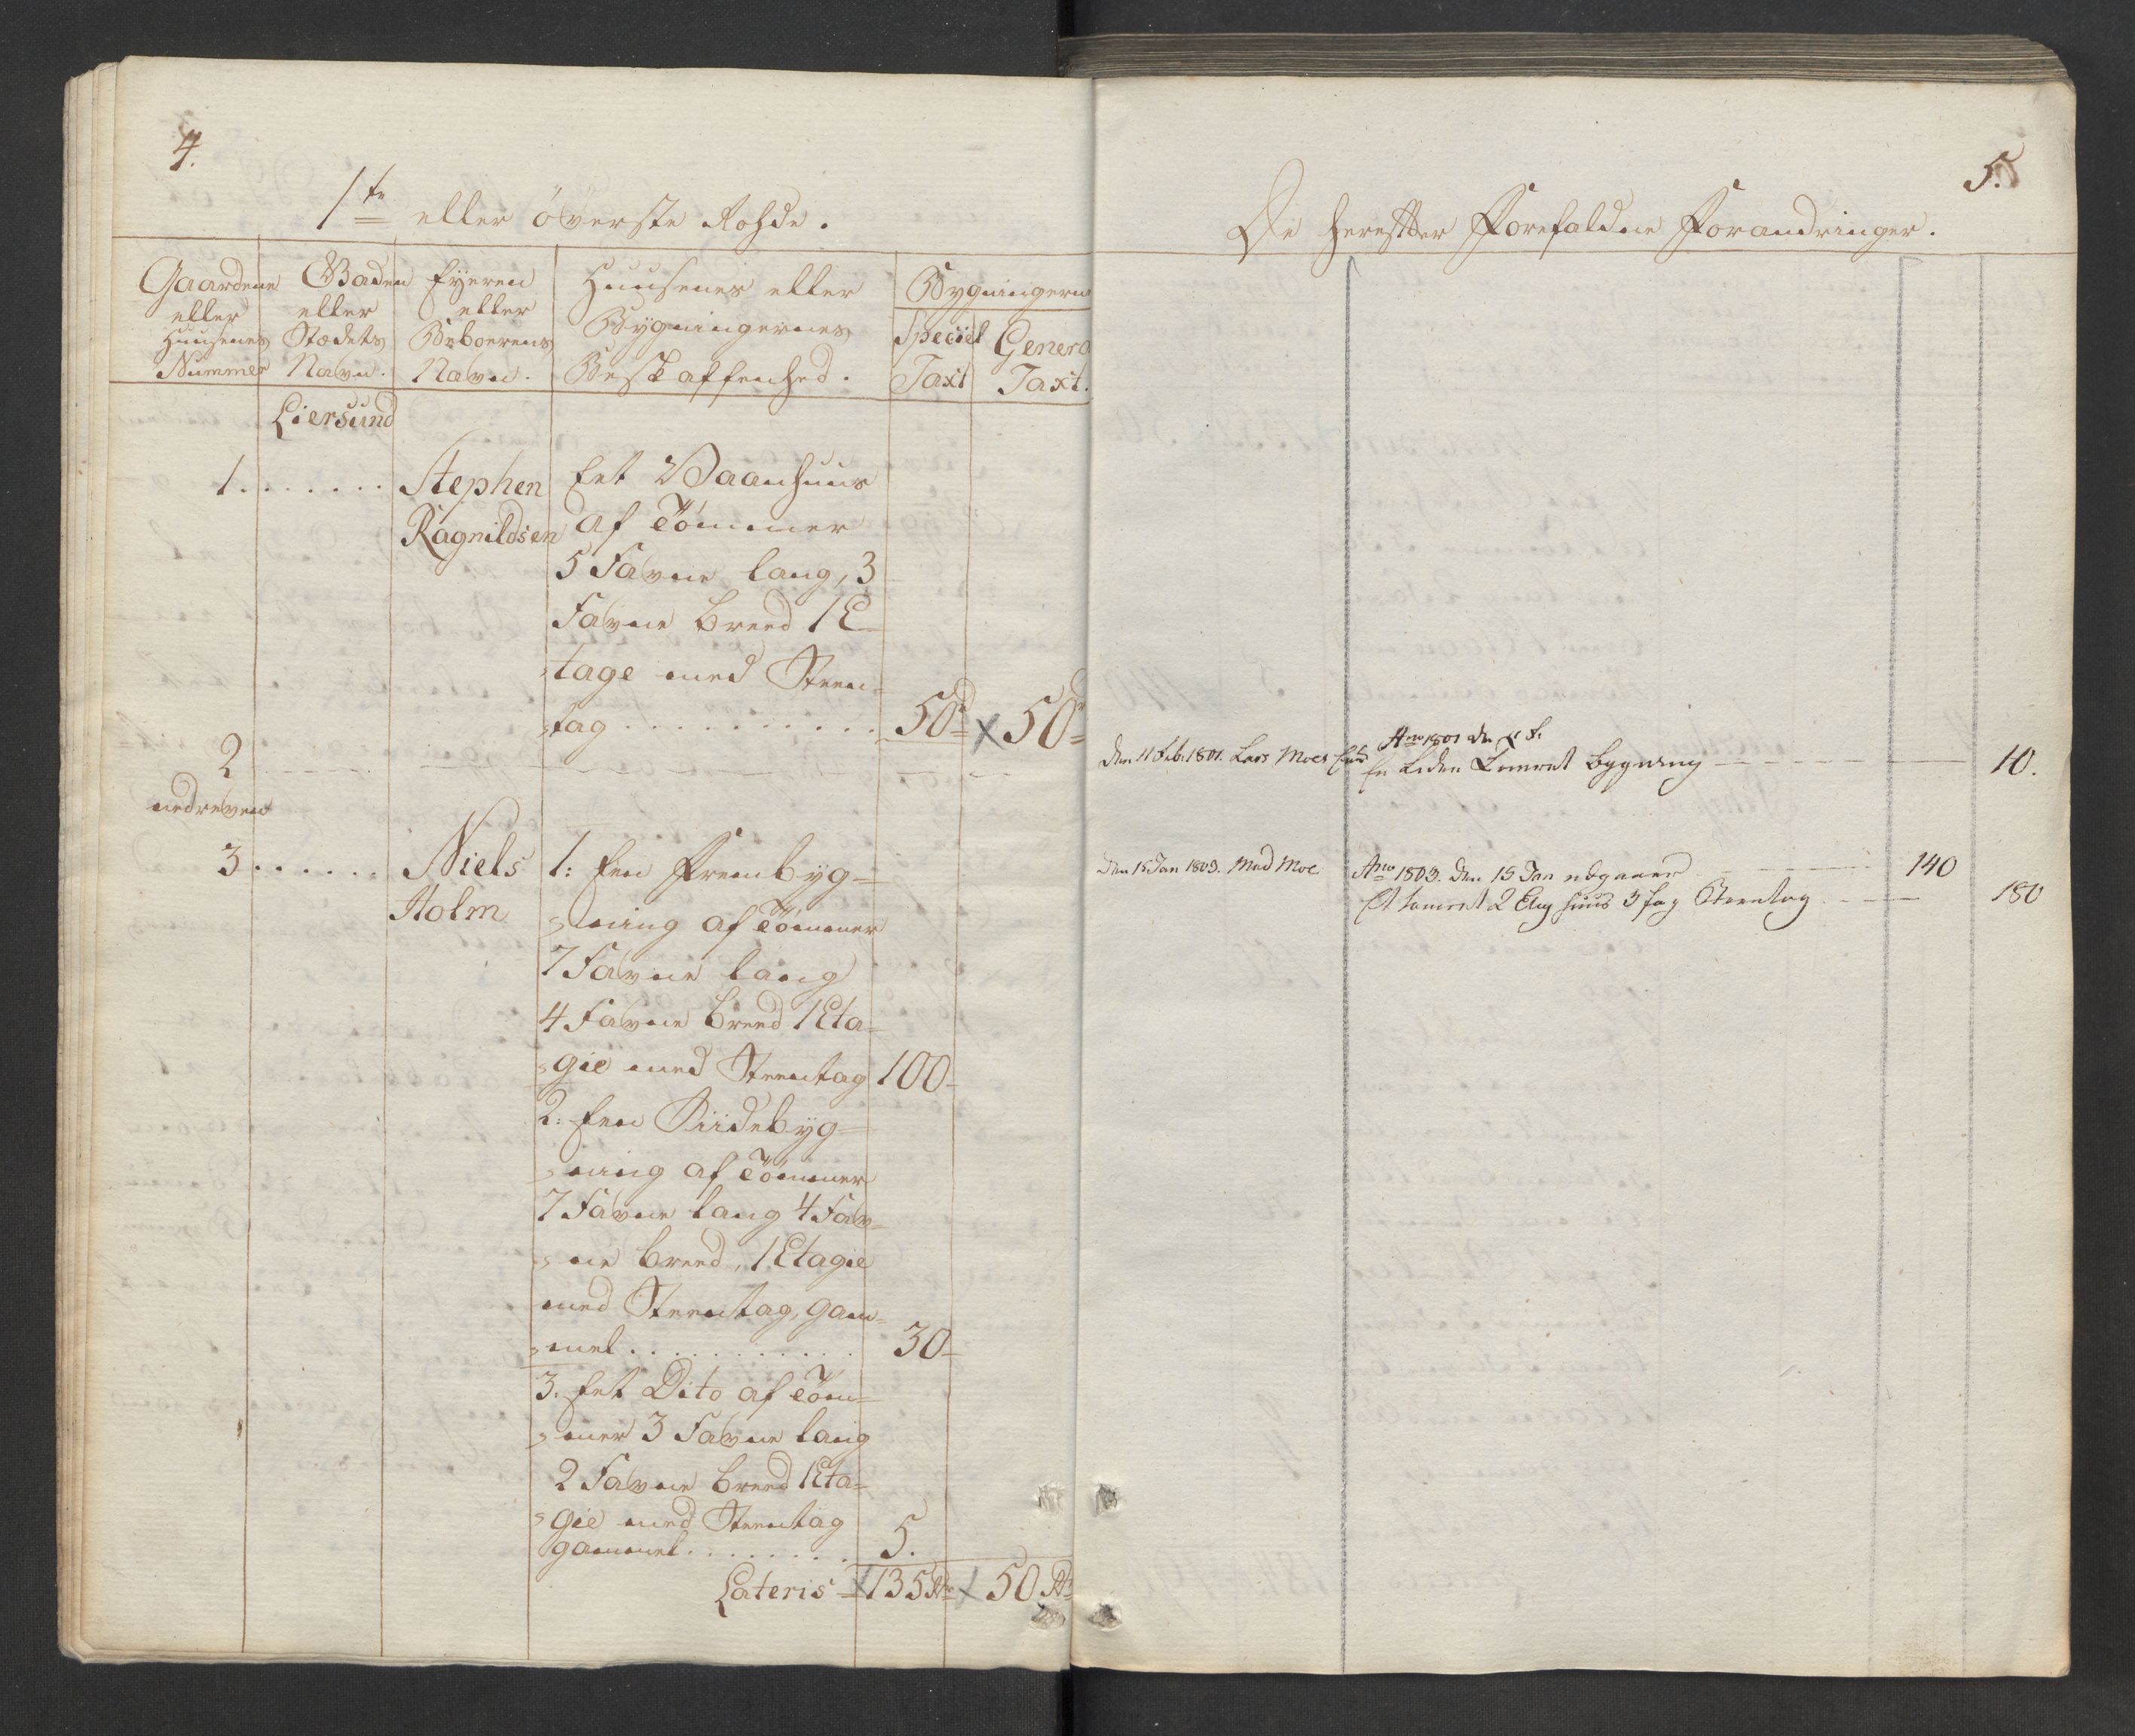 4.
1te eller överste Rohde.
Gaardene eller Huusenes Nummer
Gaden eller Stædets Navn.
Eyeren eller Beboerens Navn.
Huusenes eller Bygningernes Beskaffenhed.
Bygningern
Speciel Taxt
Genera Taxt.
Liersund
1. . . . . . . Stephen Ragnildsen
Eet Vaanhuus
af Tömmer
5 Favne lang, 3
Favne breed 1 E-
tage med Steen-
tag . . . . . . . . . . 50 rd x 50 rd
2
nedreven
3 . . . . . . Niels Holm
1: Een Frembyg-
ning af Tömmer
7 Favne lang
4 Favne breed 1 Eta-
gie med Steentag 100-
2: Een Siidebyg-
ning af Tömmer
7 Favne lang 4 Fav-
ne breed, 1 Etagie
med Steentag, gam-
mel . . . . . . . . . . 30-
3. Eet Dito af Töm-
mer 3 Favne lang
2 Favne breed 1 Eta-
gie med Steentag
gammel . . . . . . . . 5.
Lateris - 135 Rd x 50 Rd
5.
De herefter Forefaldne Forandringer.
Ano 1801 den
den 11 Feb. 1801. Lars Moes
En Liden Tømret bygning 10.
den 15 Jan 1803. Mad Moe
Ano 1803. den 15 Jan udgaaer 140
Et tømret 2 Etag huus 3 fag Steentag 180